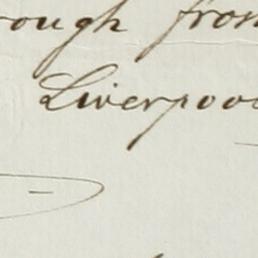 rough from
Liverpool